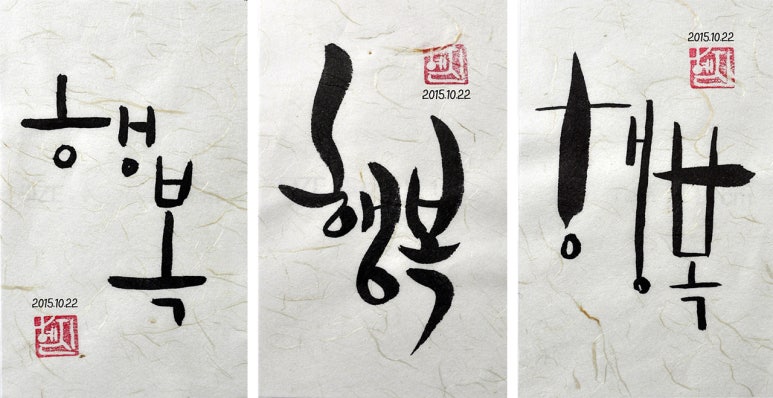 행복
2015.10.22
2015.10.22
행복
2015.10.22
행복